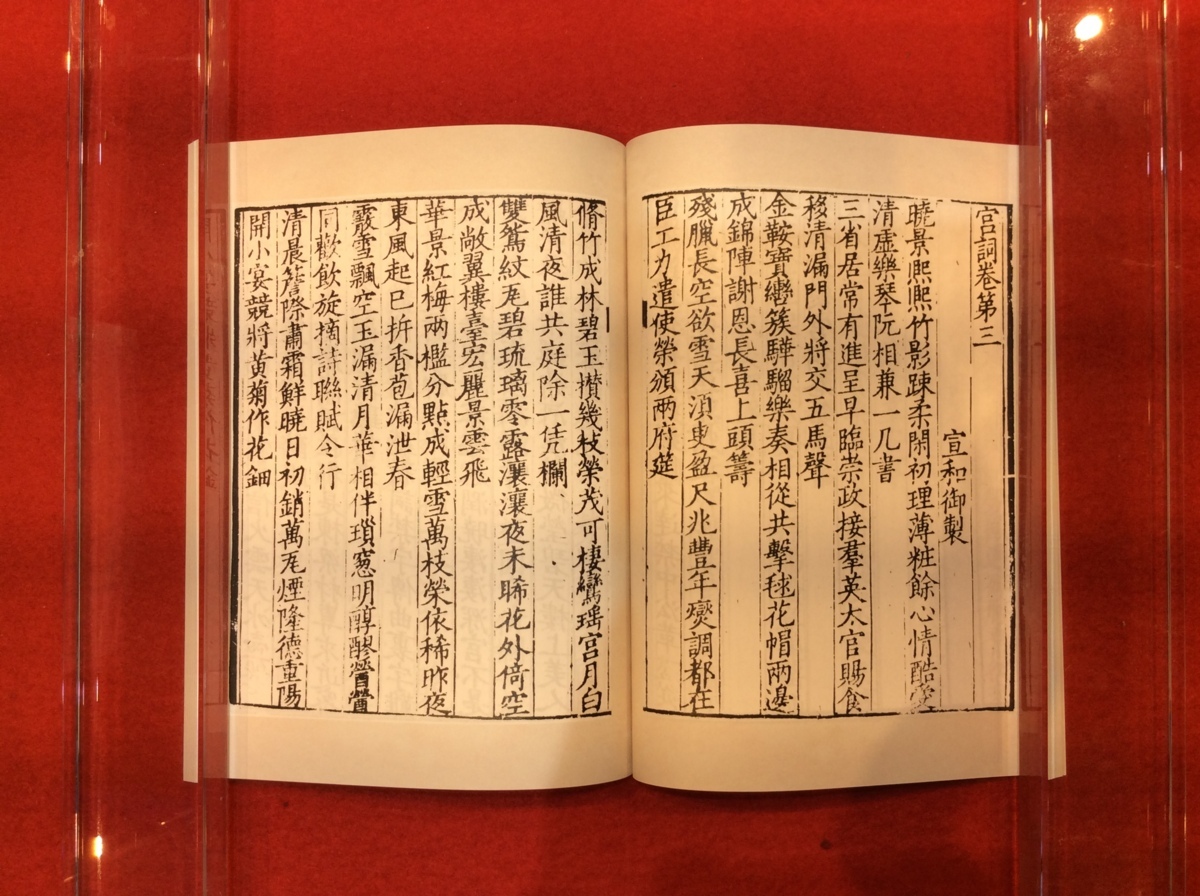 宮詞卷第三
宣和御製
曉景熙熙竹影踈柔閑初理薄粧餘心情酷愛
清虛樂琴阮相兼一几書
三省居常有進呈早臨崇政接羣英太官賜食
移清漏門外將交五馬聲
金鞍寶轡簇驊騮樂奏相從共擊毬花帽兩邊
成錦陣謝恩長喜上頭籌
殘臘長空欲雪天湏臾盈尺兆豐年爕調都在
臣工力遣使榮頒兩府筵
脩竹成林碧玉攅幾栽榮茂可棲鸞瑶宮月白
風清夜誰共庭除一凭欄
雙鴛紋瓦碧琉璃零露瀼瀼夜未晞花外倚空
成敞翼樓臺宏麗景雲飛
華景紅梅兩檻分點成輕雪萬枝榮依稀昨夜
東風起已拆香苞漏泄春
霰雪飄空玉漏清月華相伴瑣窻明醇醪
同歡飲旋摘詩聯賦令行
清晨簷際肅霜鮮曉日初銷萬瓦煙隆德重陽
開小宴競將黃菊作花鈿